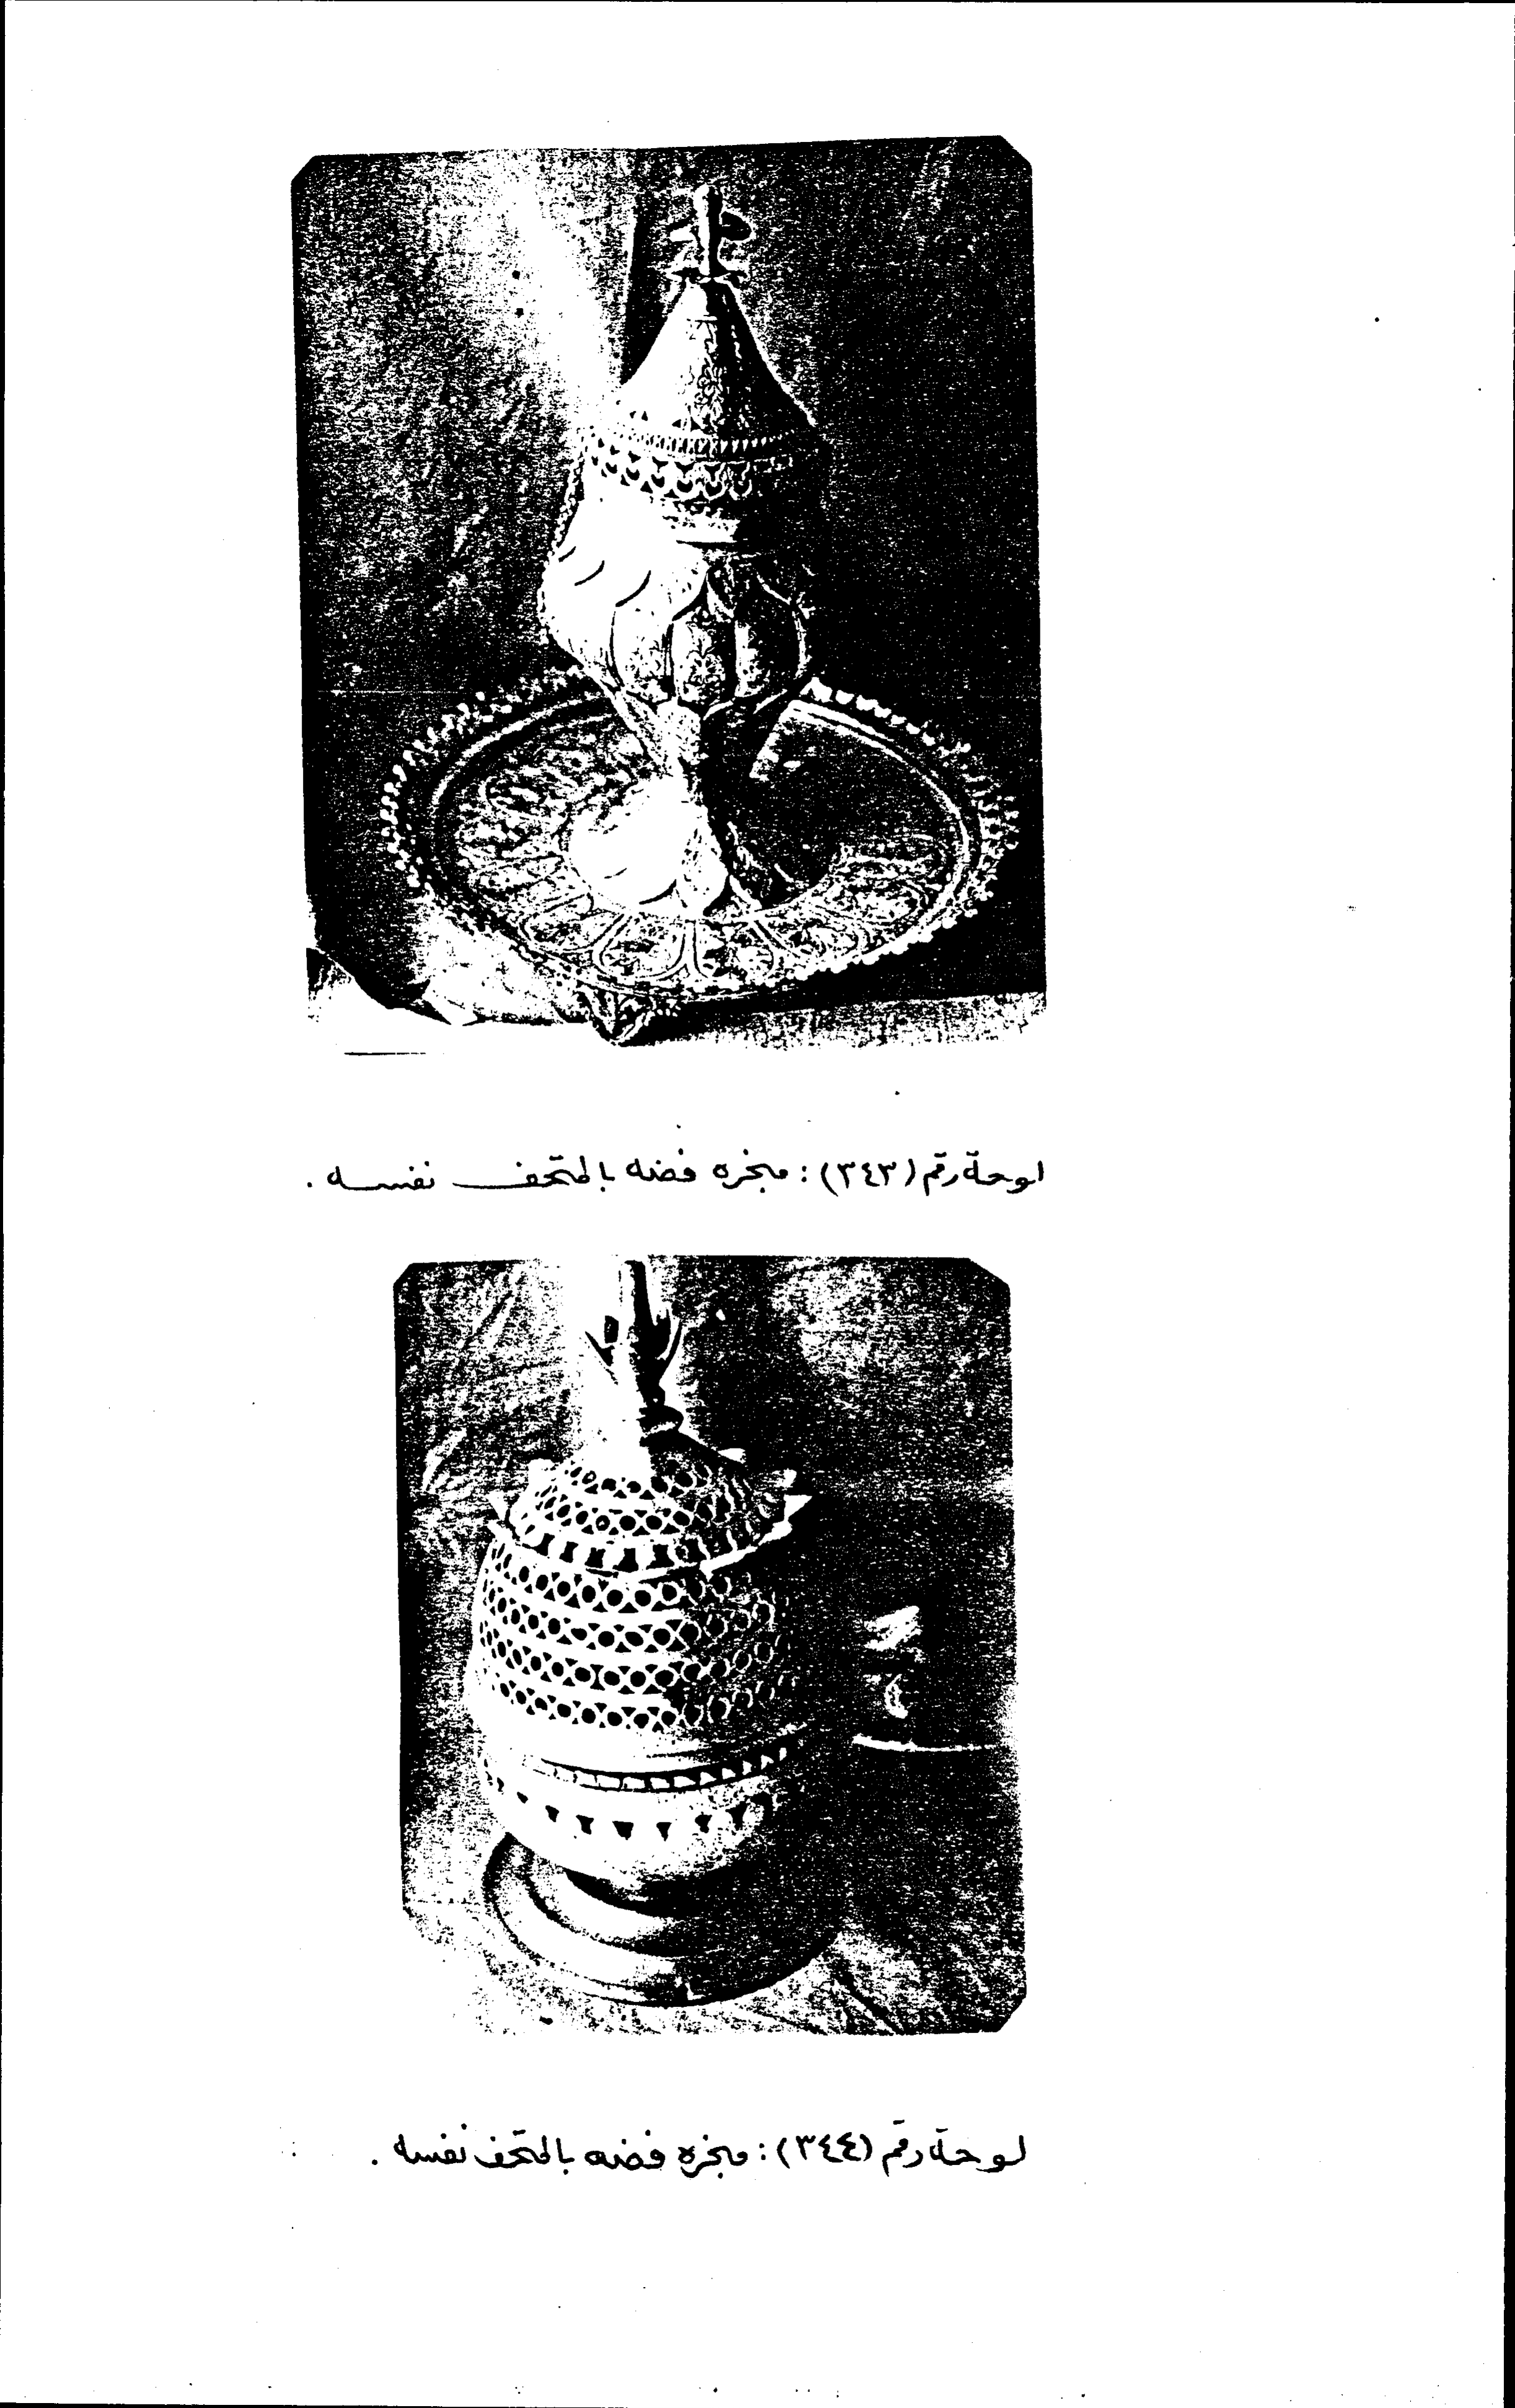 لوحة رقم (٣٤٣) : مبخره فضه بالمتحف نفسه .
لوحة رقم (٣٤٤) : مبخره فضه بالمتحف نفسه .